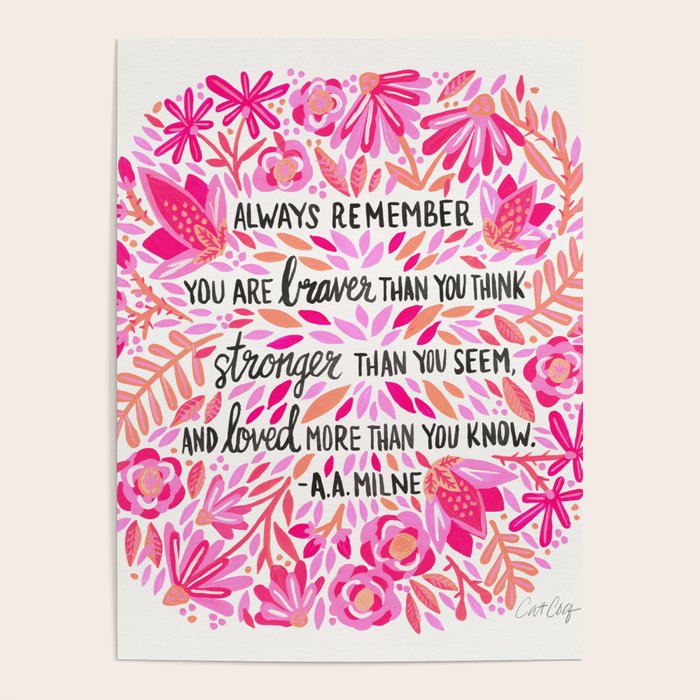 ALWAYS REMEMBER
YOU ARE braver THAN YOU THINK
stronger THAN YOU SEEM,
AND loved MORE THAN YOU KNOW.
-A.A. MILNE
Cat Coq